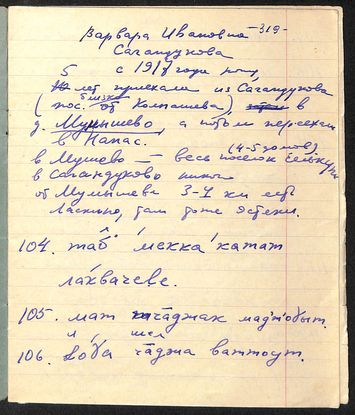 -319-
Варвара Ивановна
Сагандукова
с 1918 года рожд.
5 лет приехали из Сагандукова
(пос. близко Колпашева), в
д. Мумышево, а потом переехали
в Напас.
(4-5 домов)
в Мушево — весь посёлок
в Сагандуково
от Мумышева 3-4 км есть
Ласкино, там тоже остяки.
104. таб мекка катат
лаквачеве.
105. мат чаджак маджобыт.
я шел
106. чаджа ваттоут.